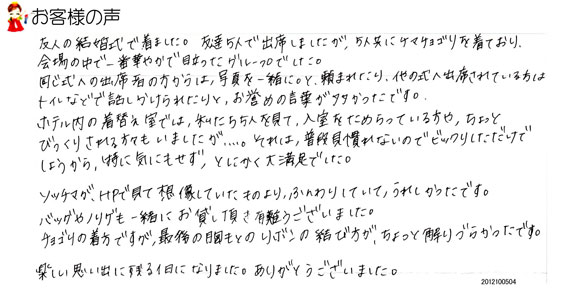 お客様の声
友人の結婚式で着ました。友達5人で出席しましたが、5人共にケマチョゴリを着ており、
会場の中で一番華やかで目立ったグループでした。
同じ式への出席者の方からは、写真を一緒に。と、頼まれたり、他の式へ出席されている方は
トイレなどで話しかけられたりと、お誉めの言葉が多かったです。
ホテル内の着替え室では、私たち5人を見て、入室をためらっている方や、ちょっと
びっくりされる方々もいましたが....。それは、普段見慣れないのでビックリしただけで
しょうから、特に気にもせず、とにかく大満足でした。
ソッチマが、HPで見て想像していたものより、ふんわりしていて、うれしかったです。
バッグやノリゲも一緒にお貸し頂き有難うございました。
チョゴリの着方ですが、最後の胸もとのリボンの結び方が、ちょっと解りづらかったです。
楽しい思い出に残る1日になりました。ありがとうございました。
2012100504